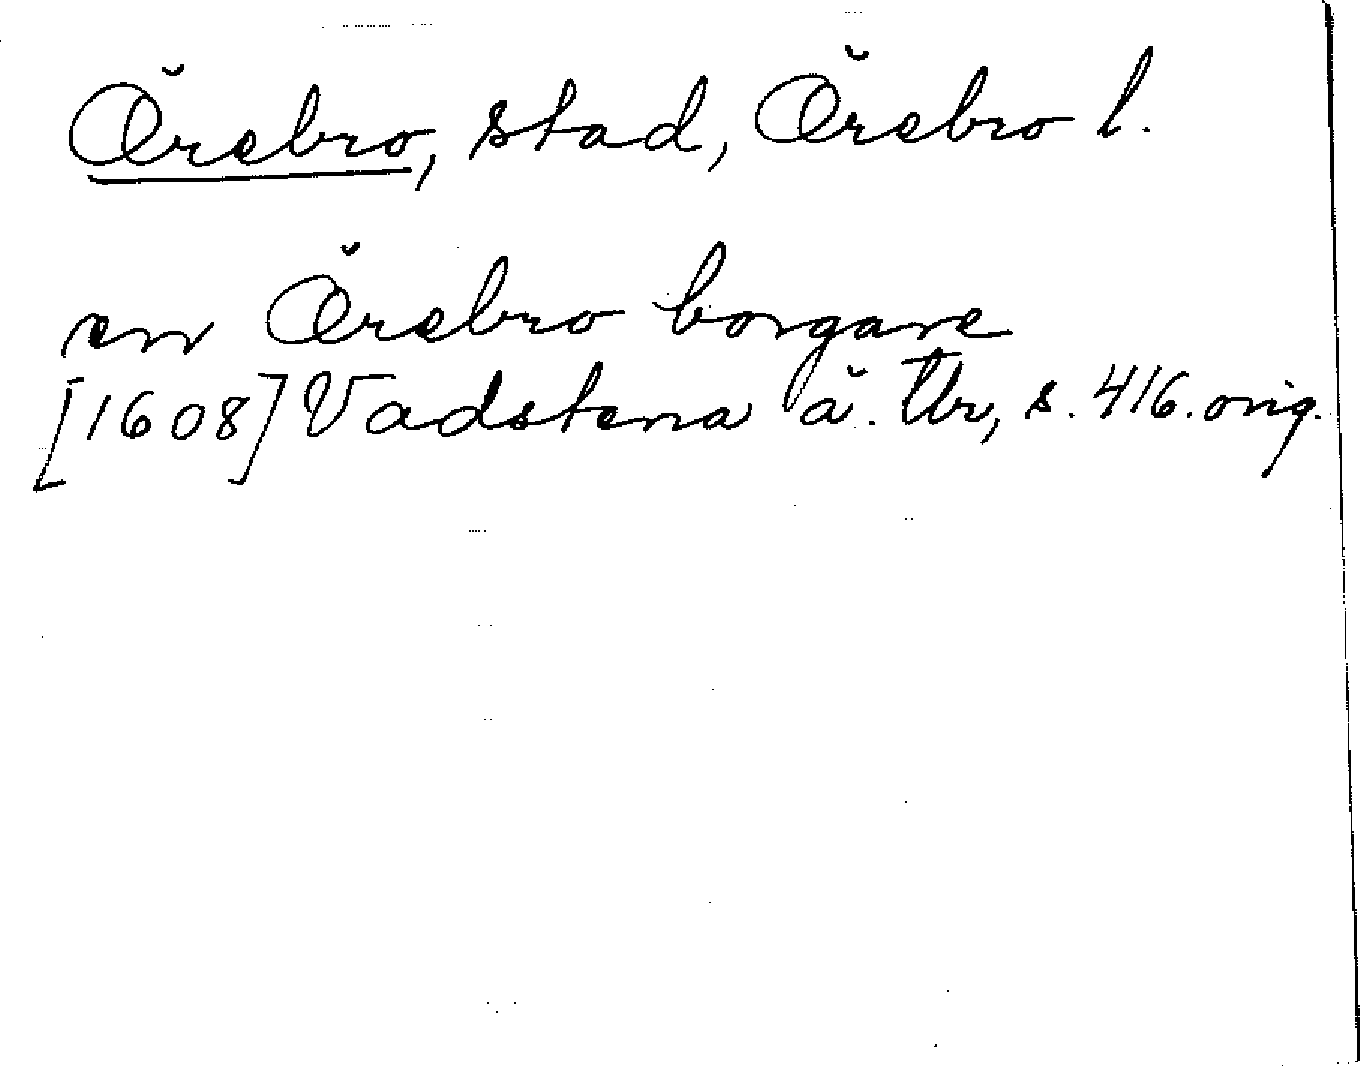 Örebro, stad, Örebro l.
en Örebro borgare
[1608] Vadstena ä. Tb, s. 416. orig.